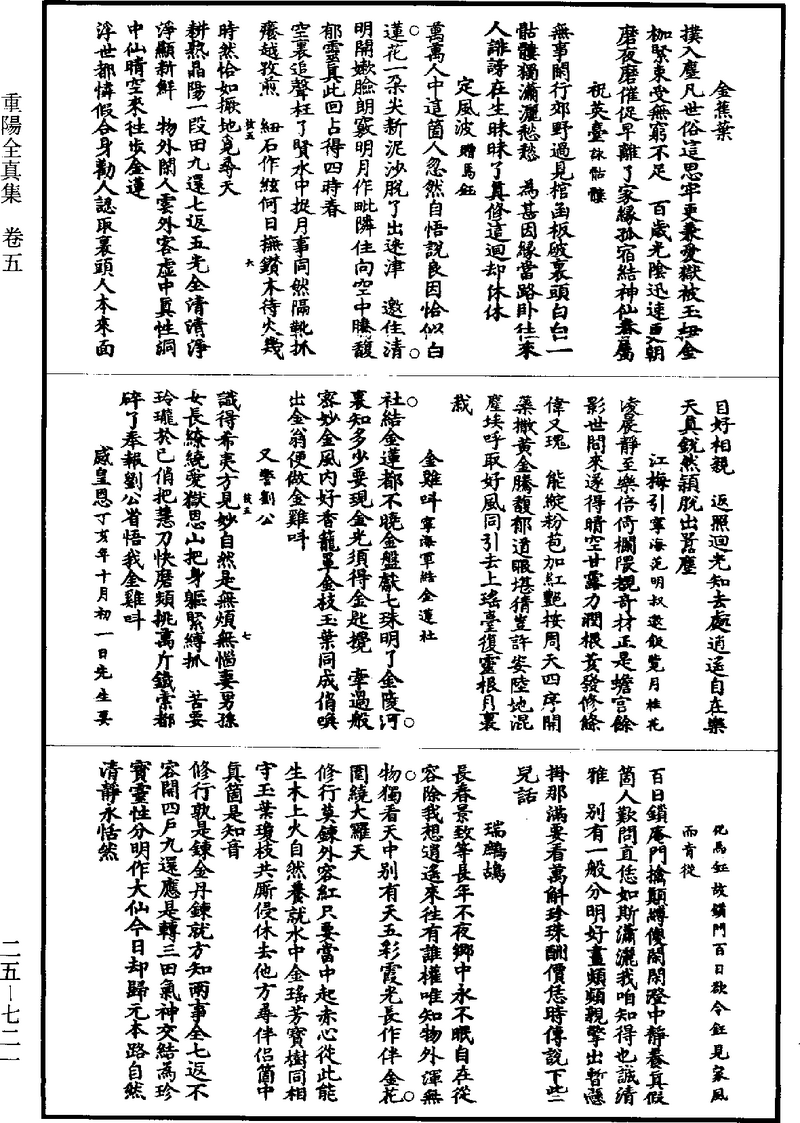 金蕉葉
撲入塵凡世俗這恩牢更兼愛獄被玉杻金
枷緊束受無窮不足　百歲光陰迅速更朝
磨夜磨催促早離了家緣孤宿結神仙眷屬
祝英臺詠骷髏
無事閑行郊野過見棺函板破裏頭白白一
骷髏獨瀟灑愁愁　為甚因緣當路卧往來
人誹謗在生昧昧了真修這迴却休休
定風波贈馬鈺
萬萬人中這箇人忽然自悟說良因恰似白
蓮花一朶尖新泥沙脫了出迷津　邀住清
明開嫰臉朗竅明月作毗隣住向空中騰馥
郁靈真此回占得四時春
空裏追聲枉了賢水中捉月事同然隔靴抓
癢越孜煎　細石作絃何日撫鑽木待火幾
時然恰如撅地覓尋天
耕熟晶陽一段田九還七返五光全清清淨
淨顯新鮮　物外閑人雲外客虛中真性洞
中仙晴空來往步金蓮
浮世都悼假合身勸人認取裏頭人本來面
目好相親　返照迴光知去處逍遥自在樂
天真銳然頴脫出嚣塵
江梅引寧海范明叔邀飯覽月桂花
淩晨靜至樂倍倚欄隈覩奇材正是蟾宮餘
影世間來遂得晴空甘露力潤根荄發修條
偉又瑰　能綻粉苞加紅艷按周天四序開
蘂撒黃金騰馥郁透眼堪猜豈許姿陸地混
塵埃呼取好風同引去上瑤臺復靈根月裏
栽
金雞叫寧海軍結金蓮社
社結金蓮都不曉金盤獻七珠明了金陵河
裏知多少要現金光須得金匙攪　牽過般
密妙金風內好香籠罩金枝玉葉同成俏喚
出金翁便做金雞叫
又警劉公
識得希夷方見妙自然是無煩無惱妻男孫
女長繚繞愛獄恩山把身軀緊縛抓　苦要
玲瓏於已俏把慧刀快磨頻挑萬斤鐵索都
碎了奉報劉公省悟我金雞叫
感皇恩丁亥年十月初一日先生要
化馬鈺故鎖門百日欲令鈺見家風
而肯從
百日鎖庵門擒顛縛傻閑閑澄中靜養真假
箇人歎問直恁如斯瀟灑我咱知得也誠清
雅　別有一般分明好畫頻頻親擎出暫懸
掛那滿要看萬斛珍珠酬價恁時傳說下此二
兒話
瑞鷓鴣
長春景致等長年不夜鄉中永不眠自在從
容除我想逍遥來往有誰權唯知物外渾無
物獨看天中別有天五彩霞光長作伴金花
圍繞大羅天
修行莫鍊外容紅只要當中起赤心從此能
生木上火自然養就水中金瑤芳寶樹同相
守玉葉瓊枝共厮侵休去他方尋伴侣箇中
真箇是知音
修行孰是鍊金丹鍊就方知兩事全七返不
容開四戶九還應是轉三田氣神交結為珍
寶靈性分明作大仙今日却歸元本路自然
清靜永恬然
重陽全真集　卷五
二五—七二一